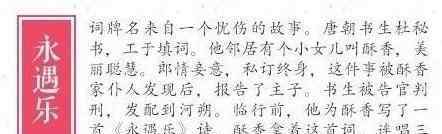 永遇乐
词牌名来自一个忧伤的故事。唐朝书生杜秘
书，工于填词。他邻居有个小女儿叫酥香，美
丽聪慧。郎情妾意，私订终身，这件事被酥香
家仆人发现后，报告了主子。书生被告官判
刑，发配到河朔。临行前，他为酥香写了一
首《永遇乐》诗，酥香拿着这首词，连唱三